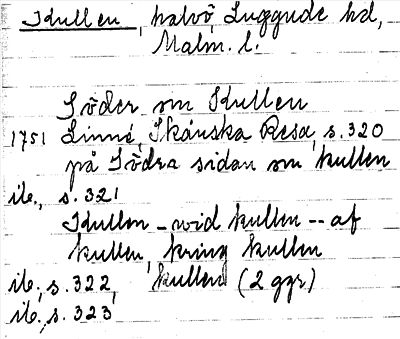 Kullen, halvö, Luggude hd,
Malm. l.
Söder om Kullen
1751 Linné, Skånska Resa, s. 320
på Södra sidan om kullen
ib., s. 321
Kullen - wid kullen -- af
kullen, kring kullen
ib., s. 322, kullen (2 ggr)
ib., s. 323